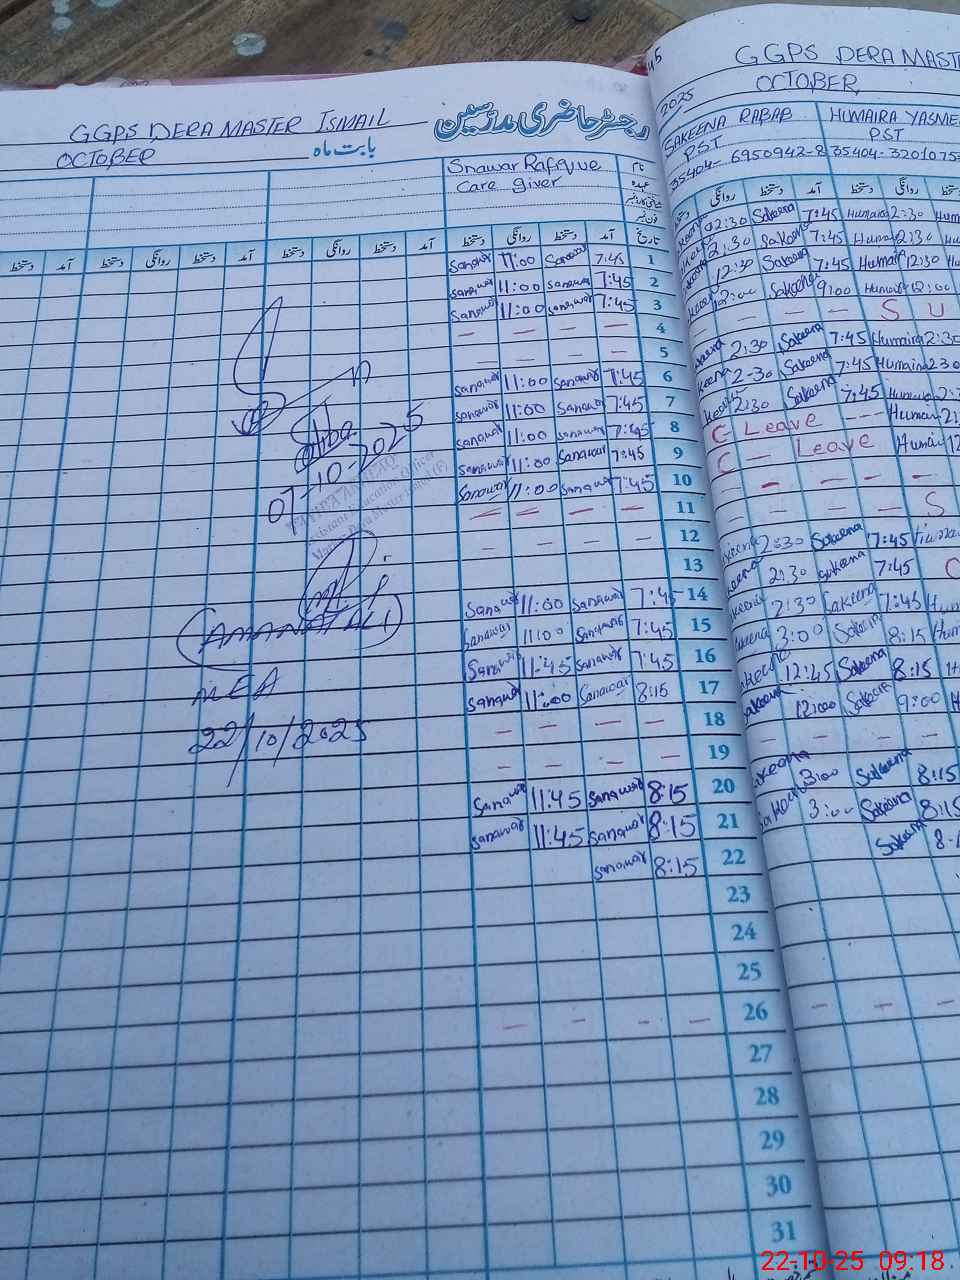 GGPS DERA MASTER ISMAIL رجسٹر حاضری مدرسین
OCTOBER بابت ماہ
Snawar Rafique نام
Care Giver عہدہ
دستخط آمد دستخط روانگی دستخط آمد دستخط روانگی دستخط آمد دستخط روانگی دستخط آمد تاریخ
Sanawar 11:00 Sanawar 7:45 1
Sanawar 11:00 Sanawar 7:45 2
Sanawar 11:00 Sanawar 7:45 3
— — — — 4
— — — — 5
Sanawar 11:00 Sanawar 7:45 6
Sanawar 11:00 Sanawar 7:45 7
Sanawar 11:00 Sanawar 7:45 8
Sanawar 11:00 Sanawar 7:45 9
Sanawar 11:00 Sanawar 7:45 10
— — — — 11
— — — — 12
13
Sanawar 11:00 Sanawar 7:45 14
Sanawar 11:00 Sanawar 7:45 15
Sanawar 11:45 Sanawar 7:45 16
Sanawar 11:00 Sanawar 8:15 17
— — — — 18
— — — — 19
Sanawar 11:45 Sanawar 8:15 20
Sanawar 11:45 Sanawar 8:15 21
Sanawar 8:15 22
23
24
25
— — — — 26
27
28
29
30
31
07-10-2025
Assistant Education Officer
(AMANAT ALI)
MEA
22/10/2025
GGPS DERA MAST
2025 OCTOBER
SAKEENA RABAB HUMAIRA YASME
PST PST
35404-6950942-2 35404-3201075
روانگی دستخط آمد دستخط روانگی دستخط
2:30 Sakeena 7:45 Humaira 2:30 Hum
2:30 Sakeena 7:45 Huma 2:30
12:30 Sakeena 7:45 Humaira 12:30
12:00 Sakeena 9:00 Humaira 12:00
— — — — S U
2:30 Sakeena 7:45 Humaira 2:30
2:30 Sakeena 7:45 Humaira 2:30
2:30 Sakeena 7:45 Humaira 2:3
C Leave --- Humai 2:
C — Leave Humai 12
— — — —
— — — S
2:30 Sakeena 7:45
2:30 Sakeena 7:45 C
2:30 Sakeena 7:45 Hum
3:00 Sakeena 8:15 Hum
12:45 Sakeena 8:15
12:00 Sakeena 9:00
— — — —
3:00 Sakeena 8:15
3:00 Sakeena 8:15
Sakeena 8:1
— — —
22-10-25 09:18